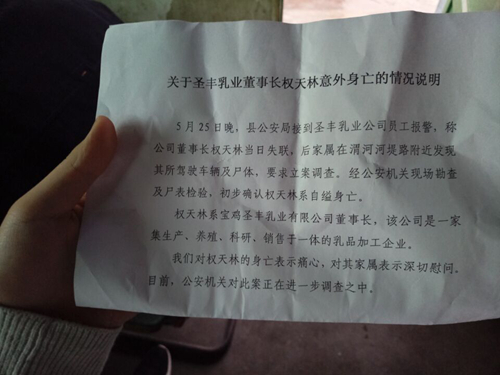 关于圣丰乳业董事长权天林意外身亡的情况说明
5月25日晚，县公安局接到圣丰乳业公司员工报警，称
公司董事长权天林当日失联，后家属在渭河河堤路附近发现
其所驾驶车辆及尸体，要求立案调查。经公安机关现场勘查
及尸表检验，初步确认权天林系自缢身亡。
权天林系宝鸡圣丰乳业有限公司董事长，该公司是一家
集生产、养殖、科研、销售于一体的乳品加工企业。
我们对权天林的身亡表示痛心，对其家属表示深切慰问。
目前，公安机关对此案正在进一步调查之中。